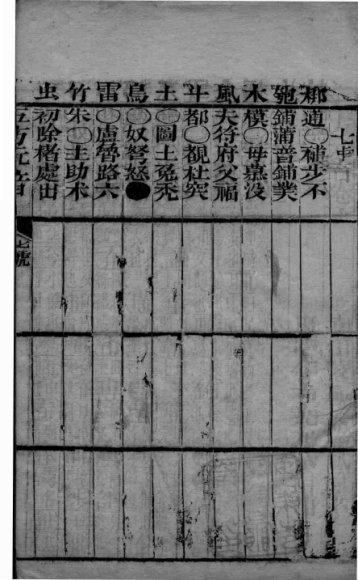 七中
梆 逋○補步不
匏 鋪蒲普鋪
木 模○母慕没
風 夫符府父福
斗 都○覩杜突
土 ○圖土兔禿
鳥 ○奴弩怒●
雷 ○盧魯路六
竹 朱○主助
虫 初除楮處出
五方元音 七虎